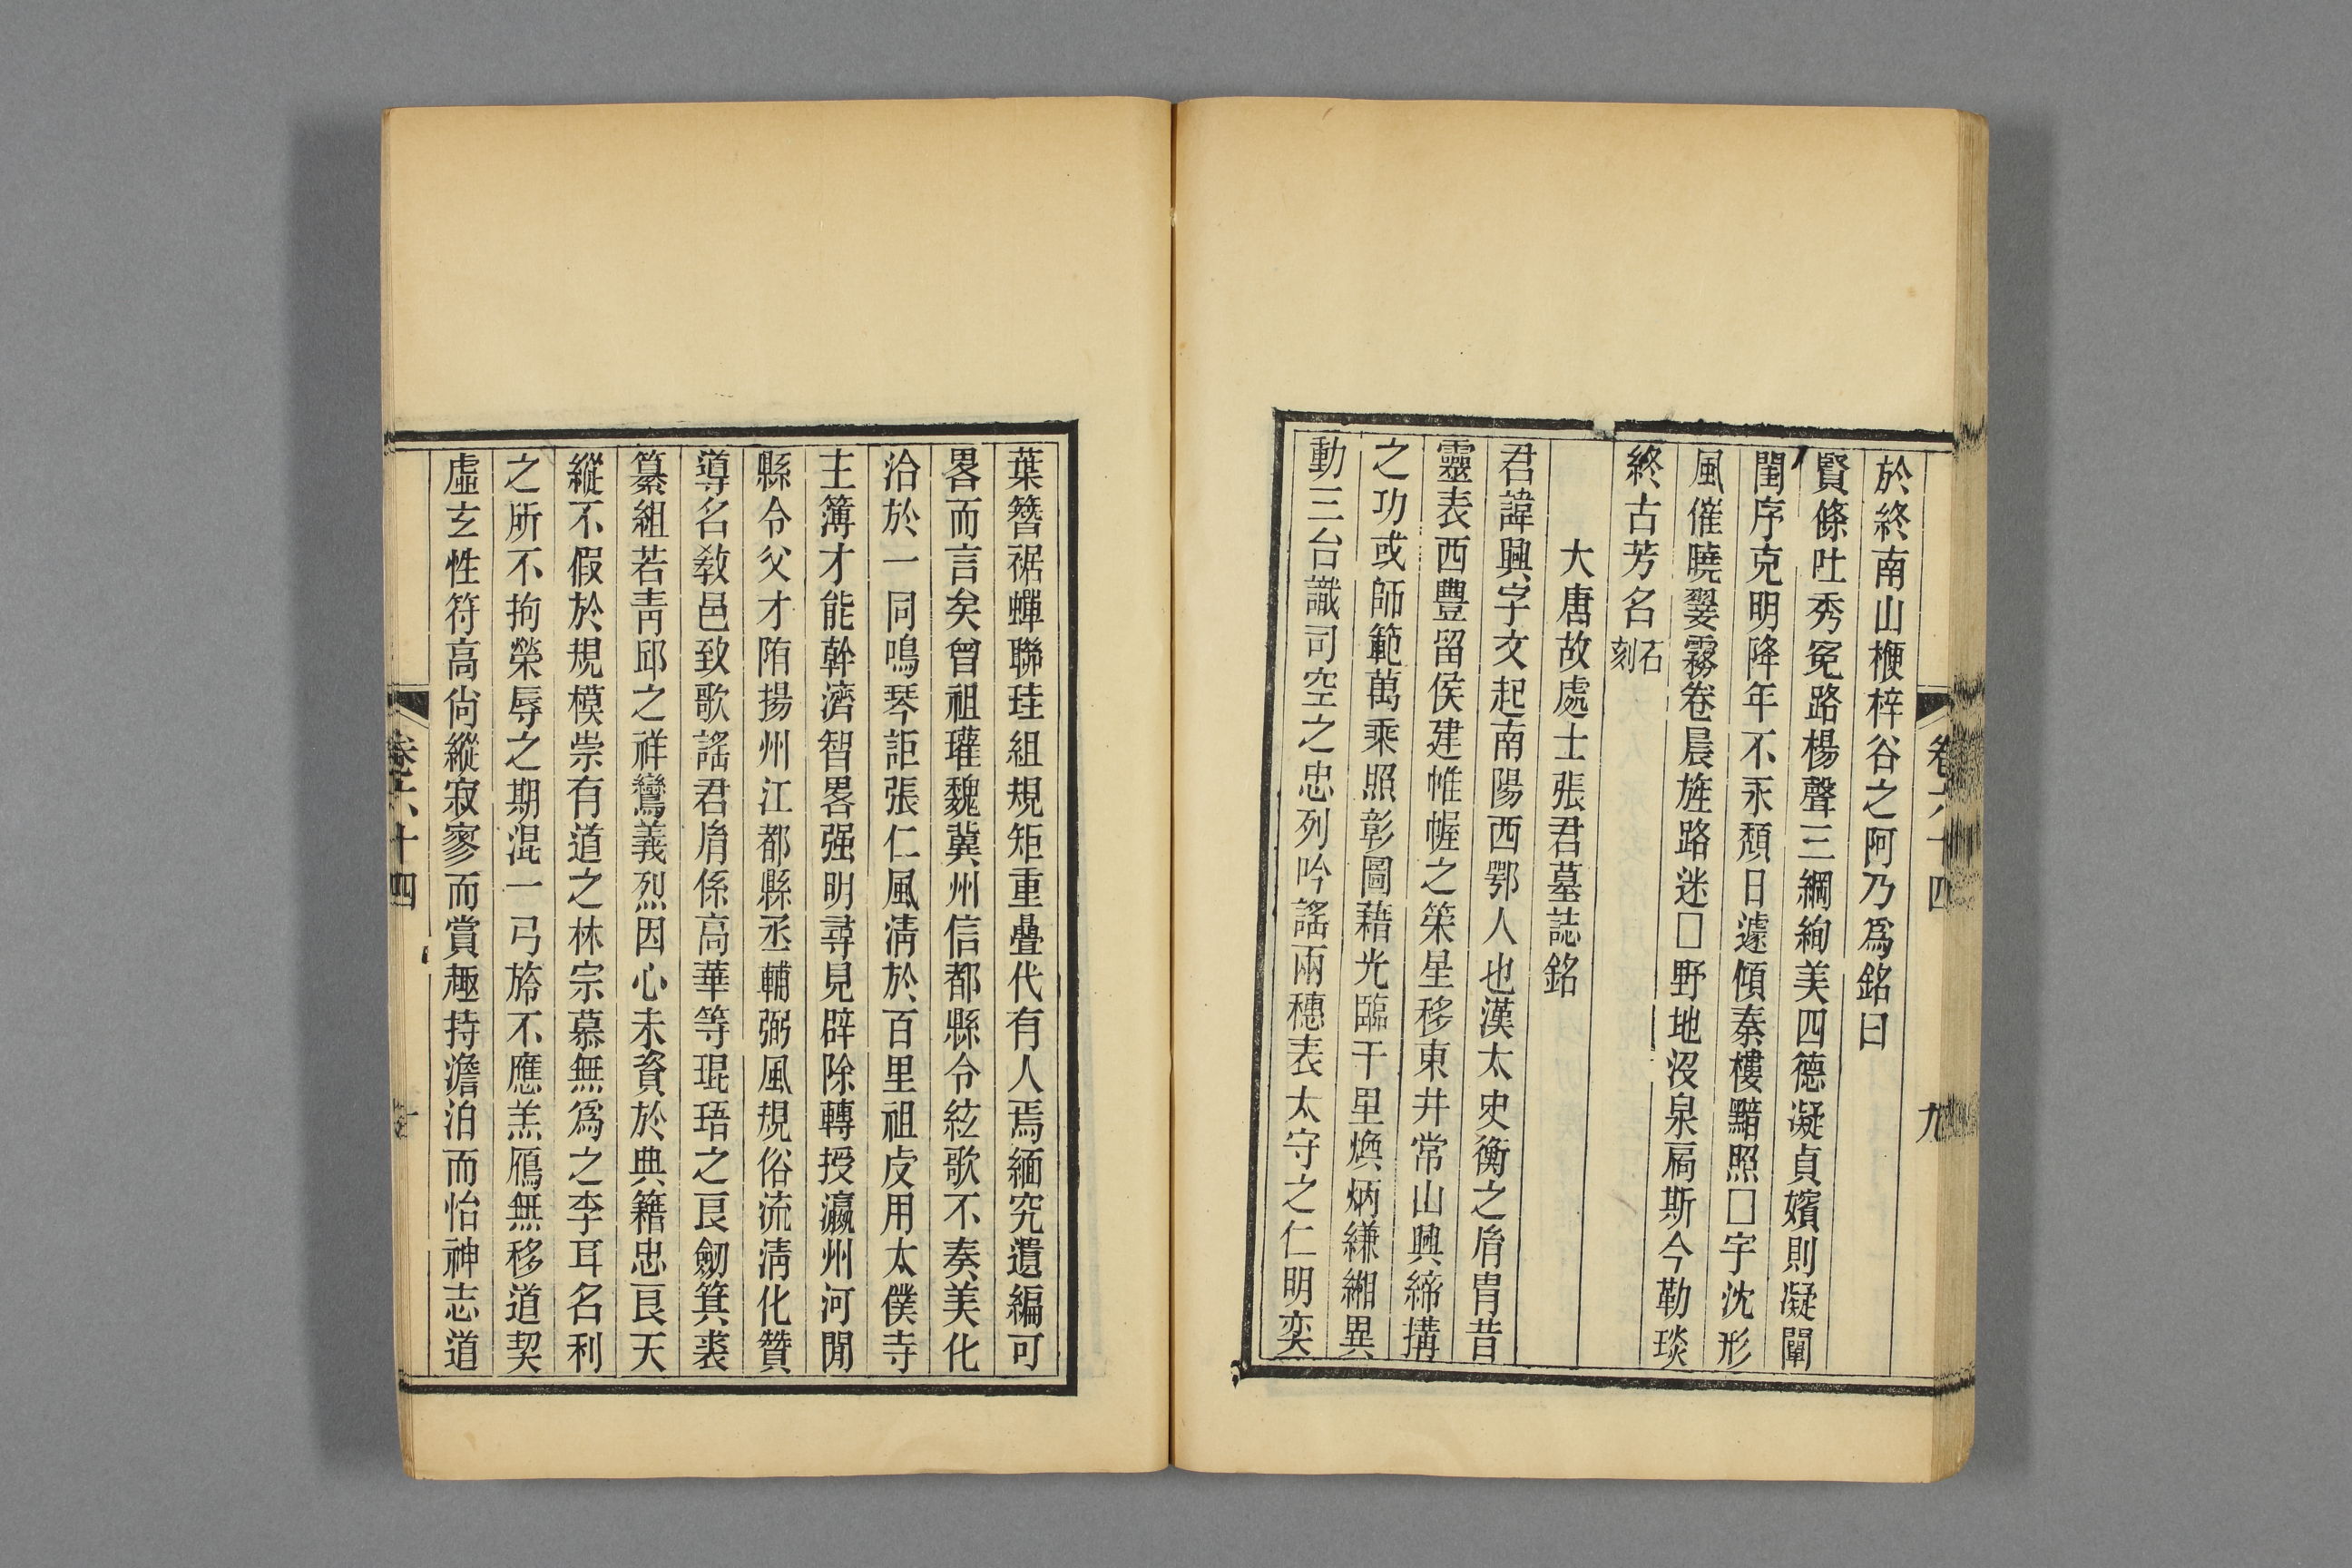 於終南山楩梓谷之阿乃爲銘曰
賢條吐秀冤路楊聲三綱絢美四德凝貞嬪則凝闈
閨序克明降年不永頹日遽傾秦樓黯照□宇沈形
風催曉翣霧卷晨旌路迷□野地沒泉扃斯今勒琰
終古芳名石刻
大唐故處士張君墓誌銘
君諱興字文起南陽西鄂人也漢太史衡之胄胄昔
靈表西豐留侯建帷幄之策星移東井常山興締搆
之功或師範萬乘照彰圖藉光臨千里煥炳縑緗異
動三台識司空之忠列吟謠兩穗表太守之仁明奕
卷六十四
九
葉簪裾蟬聯珪組規矩重疊代有人焉緬究遺編可
畧而言矣曾祖瓘魏冀州信都縣令絃歌不奏美化
洽於一同鳴琴詎張仁風淸於百里祖虔用太僕寺
主簿才能幹濟智畧强明尋見辟除轉授瀛州河閒
縣令父才隋揚州江都縣丞輔弼風規俗流淸化贊
導名敎邑致歌謠君胤係高華等琨珸之良劒箕裘
纂組若靑邱之祥鸞義烈因心未資於典籍忠良天
縱不假於規模崇有道之林宗慕無爲之李耳名利
之所不拘榮辱之期混一弓旍不應羔鴈無移道契
虛玄性符高尙縱寂寥而賞趣持澹泊而怡神志道
卷六十四